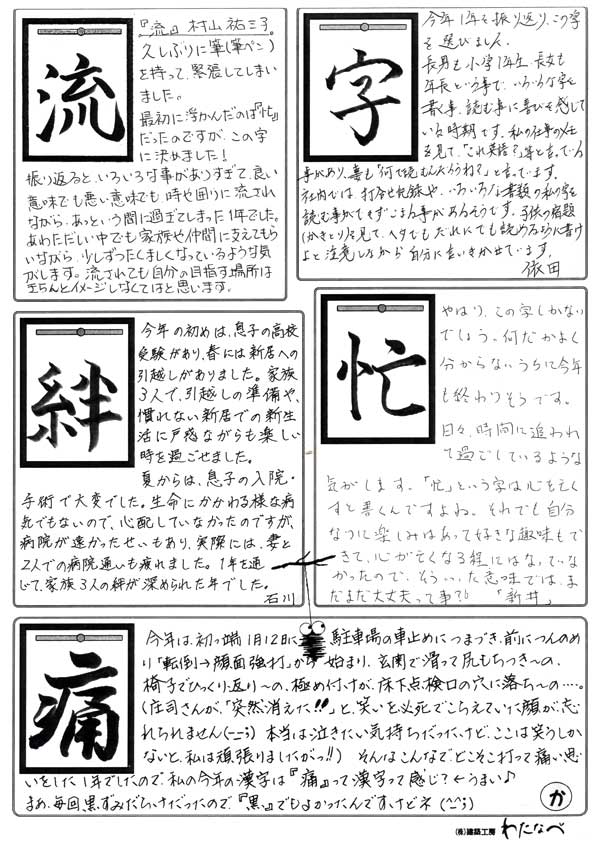 流
『流』 村山 祐三子
久しぶりに筆(筆ペン)
を持って、緊張してしまい
ました。
最初に浮かんだのは『忙』
だったのですが、この字
に決めました！
振り返ると、いろいろな事がありすぎて、良い
意味でも悪い意味でも、時や困りに流され
ながら、あっという間に過ぎてしまった1年でした。
あわただしい中でも家族や仲間に支えてもら
いながら、少しずったくましくなっているような気
がします。流されても自分の目指す場所は
きちんとイメージしなくてはと思います。
字
今年1年を振り返り、この字
を選びました。
長男も小学1年生、長女も
年長という事で、いろいろな字を
書く事、読む事に喜びを感じて
いる時期です。私の仕事のメモ
を見て、「これ英語？」等と言っている
事があり、妻も「何て読むんだろうね？」と言っています。
社内では、打合せ記録や、いろいろな書類の私の字を
読む事ができずこまる事があるそうです。子供の宿題
(かきとり)を見て、ヘタでもだれにでも読めるように書け
よと注意しながら自分に言いきかせています。
依田
絆
今年の初めは、息子の高校
受験があり、春には新居への
引越しがありました。家族
3人で、引越しの準備や、
慣れない新居での新生
活に戸惑ながらも楽しい
時を過ごせました。
夏からは、息子の入院・
手術で大変でした。生命にかかわる様な病
気でもないので、心配していなかったのですが、
病院が遠かったせいもあり、実際には、妻と
2人での病院通いも疲れました。1年を通
じて、家族3人の絆が深められた年でした。
石川
忙
やはり、この字しかない
でしょう。何だかよく
分からないうちに今年
も終わりそうです。
日々、時間に追われ
て過ごしているような
気がします。「忙」という字は心を亡く
すと書くんですよね。それでも自分
なりに楽しみはあって好きな趣味もで
きて、心が亡くなる程にはなっていな
かったので、そういった意味では、ま
だまだ大丈夫って事?!　「新井」
痛
今年は、初っ端1月12日に駐車場の車止めにつまづき、前につんのめ
り「転倒→顔面強打」から始まり、玄関で滑って尻もちつき〜の、
椅子でひっくり返り〜の、極め付けが、床下点検口の穴に落ち〜の…。
(庄司さんが、「突然消えた!!」と、笑いを必死でこらえていた顔が、忘れ
られません(ー_ー;) 本当は泣きたい気持ちだったけど、ここは笑うしか
ないと、私は頑張りましたがっ!!) そんなこんなでどこそこ打って痛い思
いをした1年でしたので、私の今年の漢字は『痛』って漢字って感じ？←うまい♪
まぁ、毎回黒ずみだらけだったので、『黒』でもよかったんですけどネ(^_^;)
か
(株)建築工房 わたなべ